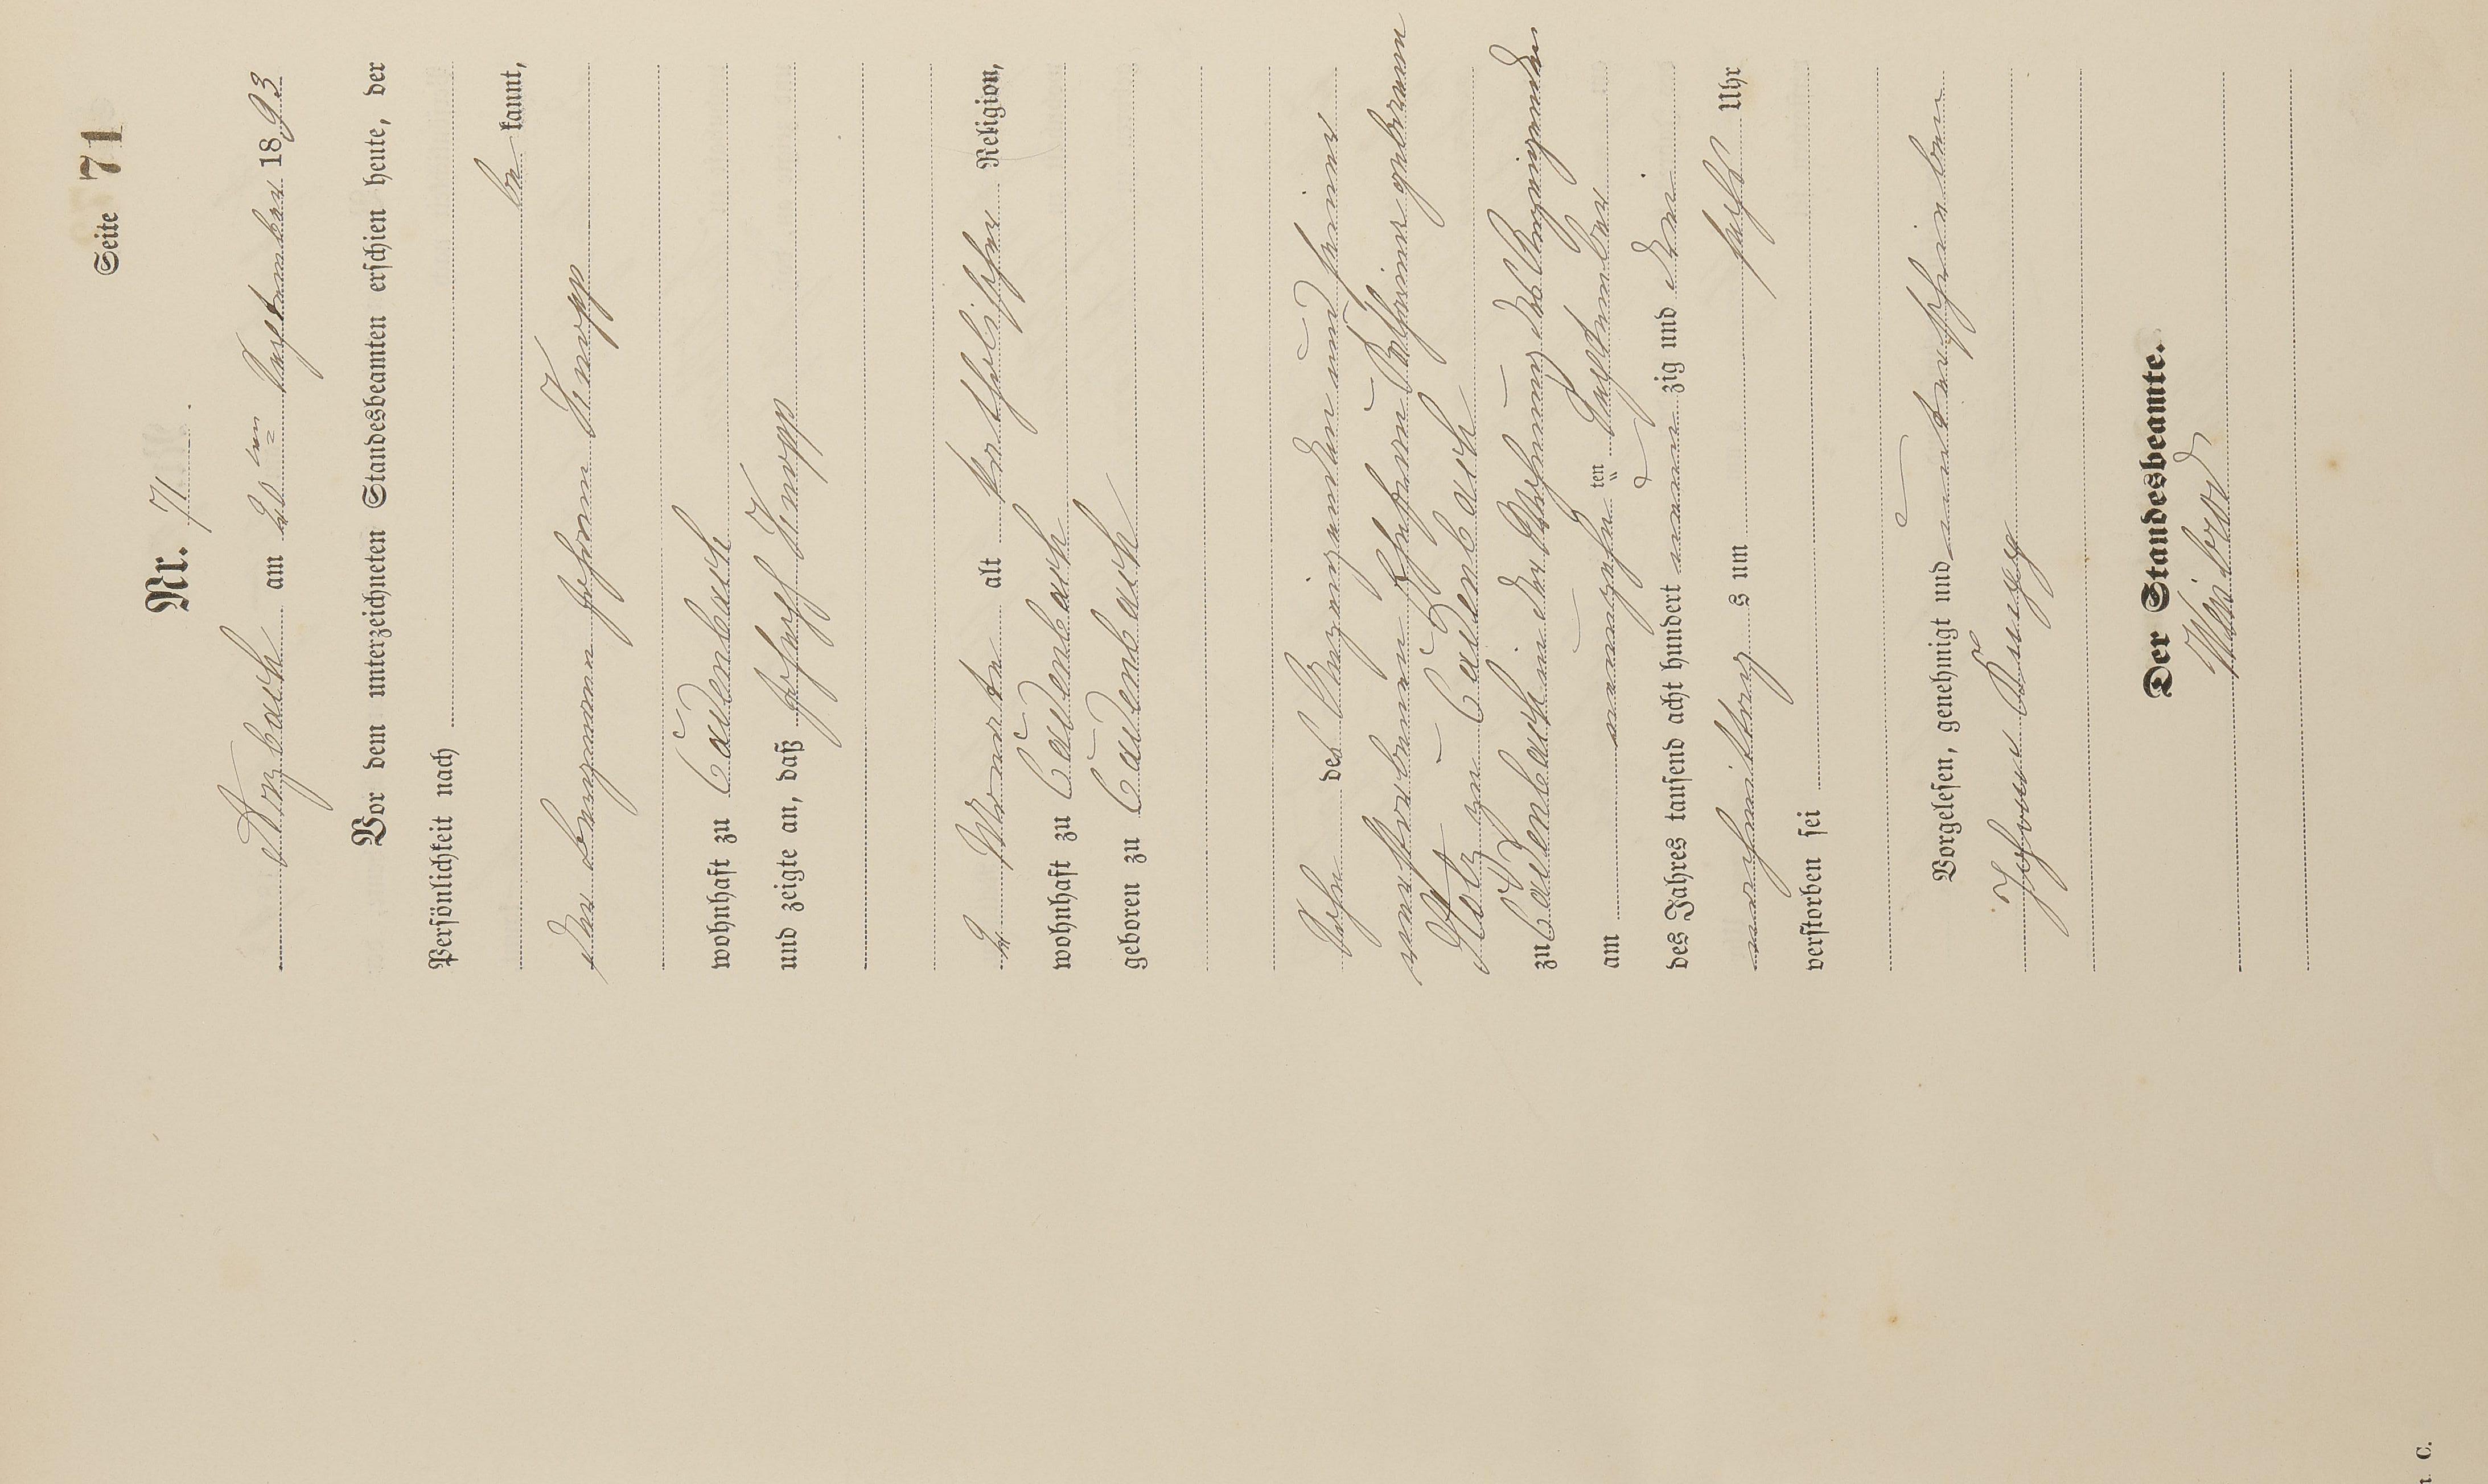 Seite 71
Nr. 71.
Arzbach am 20ten September 1893
Vor dem unterzeichneten Standesbeamten erschien heute, der
Persönlichkeit nach
be kannt,
der Bergmann Johann Knopp
wohnhaft zu Cadenbach
und zeigte an, daß Joseph Knopp
2 Monate alt katholischer Religion,
wohnhaft zu Cadenbach
geboren zu Cadenbach
Sohn des Anzeigenden und seiner
verstorbenen Ehefrau Katharina geborenen
Stotz zu Cadenbach
zu Cadenbach in der Wohnung des Anzeigenden
am neunzehn ten September
des Jahres tausend acht hundert neun zig und drei
nachmittag s um sechs Uhr
verstorben sei
Vorgelesen, genehmigt und unterschrieben
Johann
Der Standesbeamte.
n C.